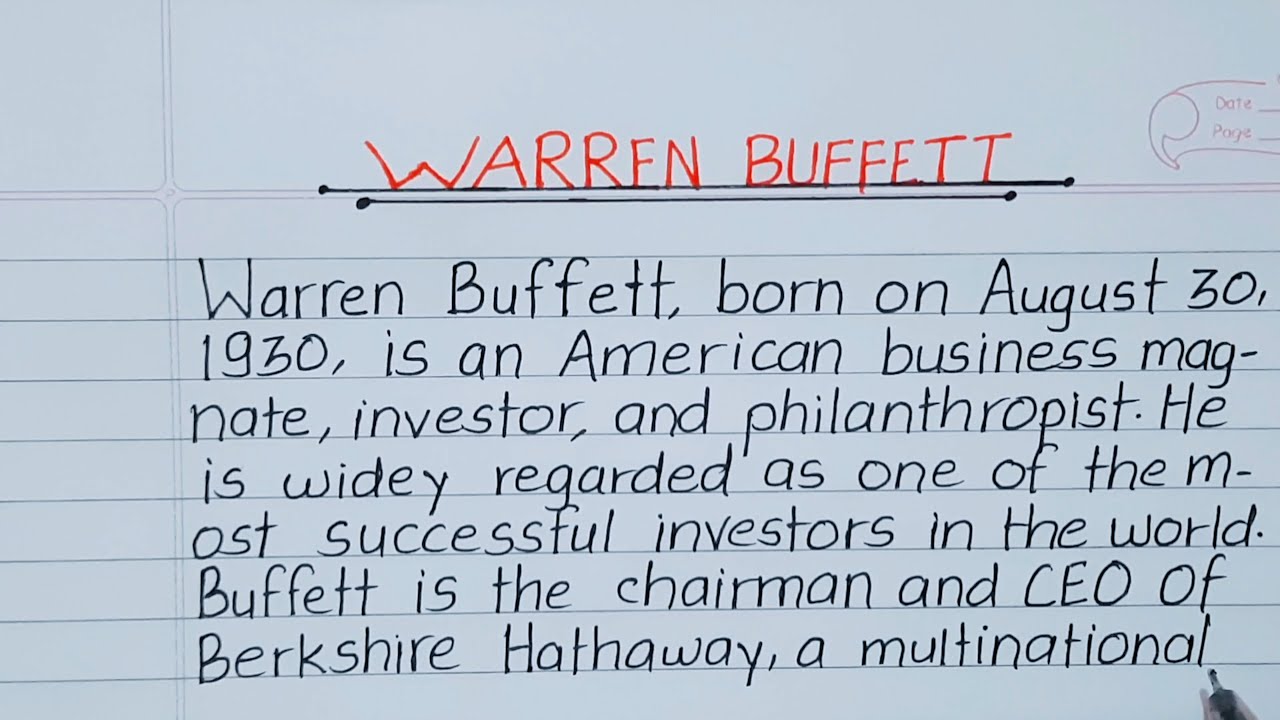 Date
Page
WARREN BUFFETT
Warren Buffett, born on August 30,
1930, is an American business mag-
nate, investor, and philanthropist. He
is widey regarded as one of the m-
ost successful investors in the world.
Buffett is the chairman and CEO Of
Berkshire Hathaway, a multinational